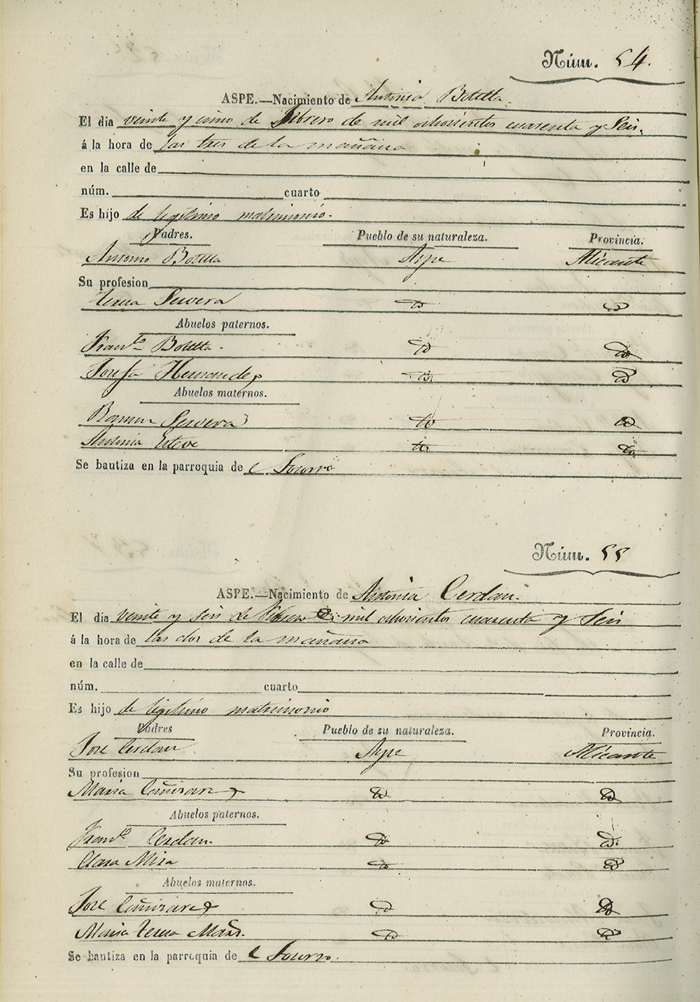 Núm. 54.
ASPE.—Nacimiento de Antonia Botella
El dia veinte y cinco de Febrero de mil ochocientos cuarenta y Seis.
á la hora de las tres de la mañana
en la calle de
núm. cuarto
Es hijo de legitimo matrimonio.
Padres. Pueblo de su naturaleza. Provincia.
Antonio Botella Aspe Alicante
Su profesion
Teresa Cervera do do
Abuelos paternos.
Franco Botella. do do
Josefa Hernandez do do
Abuelos maternos.
Ramon Cervera do do
Antonia Esteve do do
Se bautiza en la parroquia de l Socorro
Núm. 55
ASPE.—Nacimiento de Antonia Cerdan.
El dia veinte y seis de Febrero de mil ochocientos cuarenta y Seis
á la hora de las dos de la mañana
en la calle de
núm. cuarto
Es hijo de legitimo matrimonio
Padres Pueblo de su naturaleza. Provincia.
Jose Cerdan Aspe Alicante
Su profesion
Maria Cañizares do do
Abuelos paternos.
Franco Cerdan. do do.
Clara Mira do do
Abuelos maternos.
Jose Cañizares do do
Maria Teresa do do
Se bautiza en la parroquia de l Socorro.